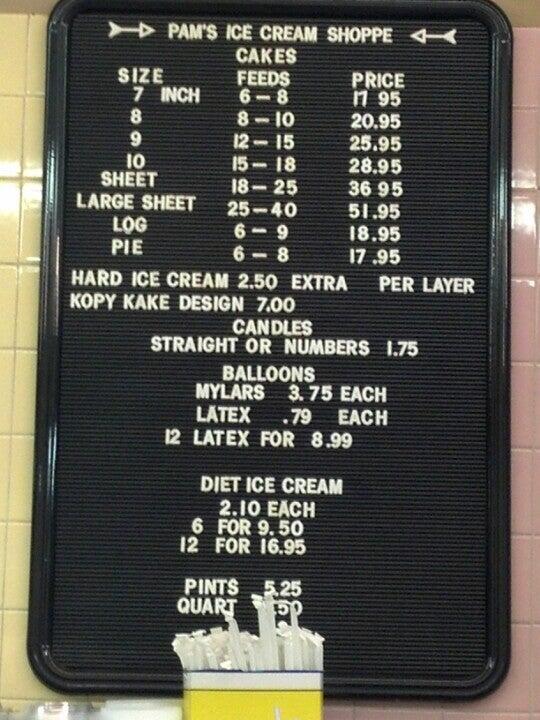 PAM'S ICE CREAM SHOPPE
CAKES
SIZE FEEDS PRICE
7 INCH 6 - 8 17 95
8 8 - 10 20.95
9 12 - 15 25.95
10 15 - 18 28.95
SHEET 18 - 25 36 95
LARGE SHEET 25 - 40 51.95
LOG 6 - 9 18.95
PIE 6 - 8 17.95
HARD ICE CREAM 2.50 EXTRA PER LAYER
KOPY KAKE DESIGN 7.00
CANDLES
STRAIGHT OR NUMBERS 1.75
BALLOONS
MYLARS 3.75 EACH
LATEX .79 EACH
12 LATEX FOR 8.99
DIET ICE CREAM
2.10 EACH
6 FOR 9.50
12 FOR 16.95
PINTS 5.25
QUART